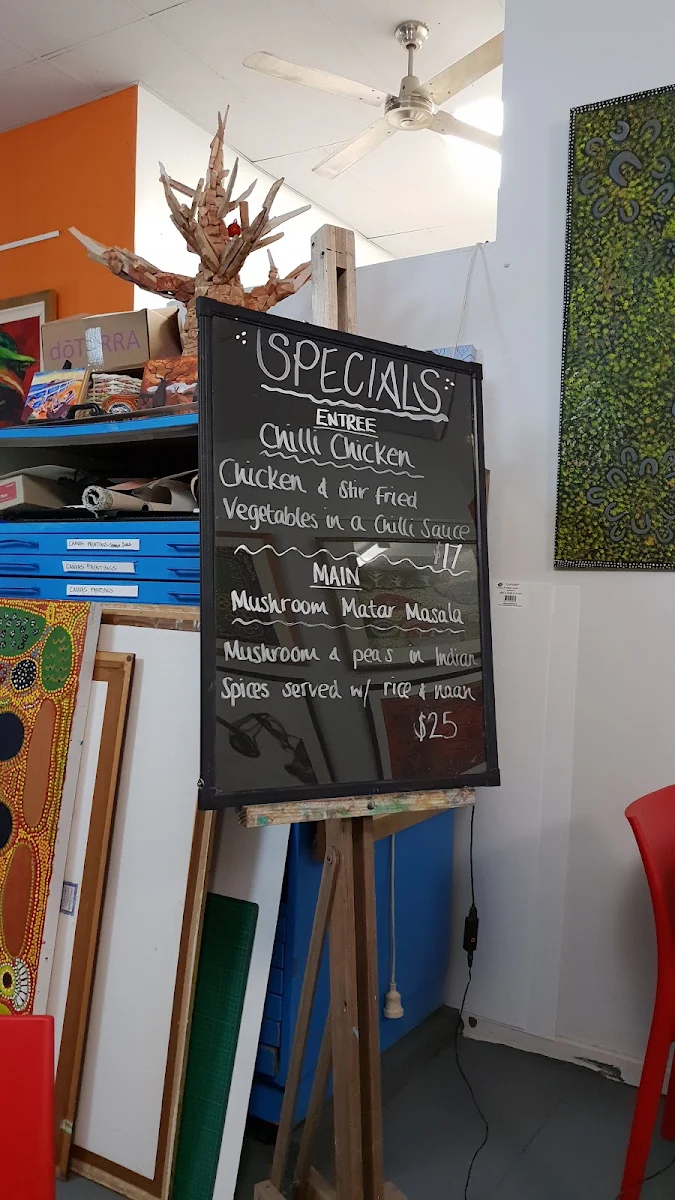 SPECIALS
ENTREE
Chilli Chicken
Chicken & Stir Fried
Vegetables in a Chilli Sauce
$17
MAIN
Mushroom Matar Masala
Mushroom & peas in Indian
Spices served w/ rice & naan
$25
dōTERRA
CANVAS PAINTINGS
CANVAS PAINTINGS